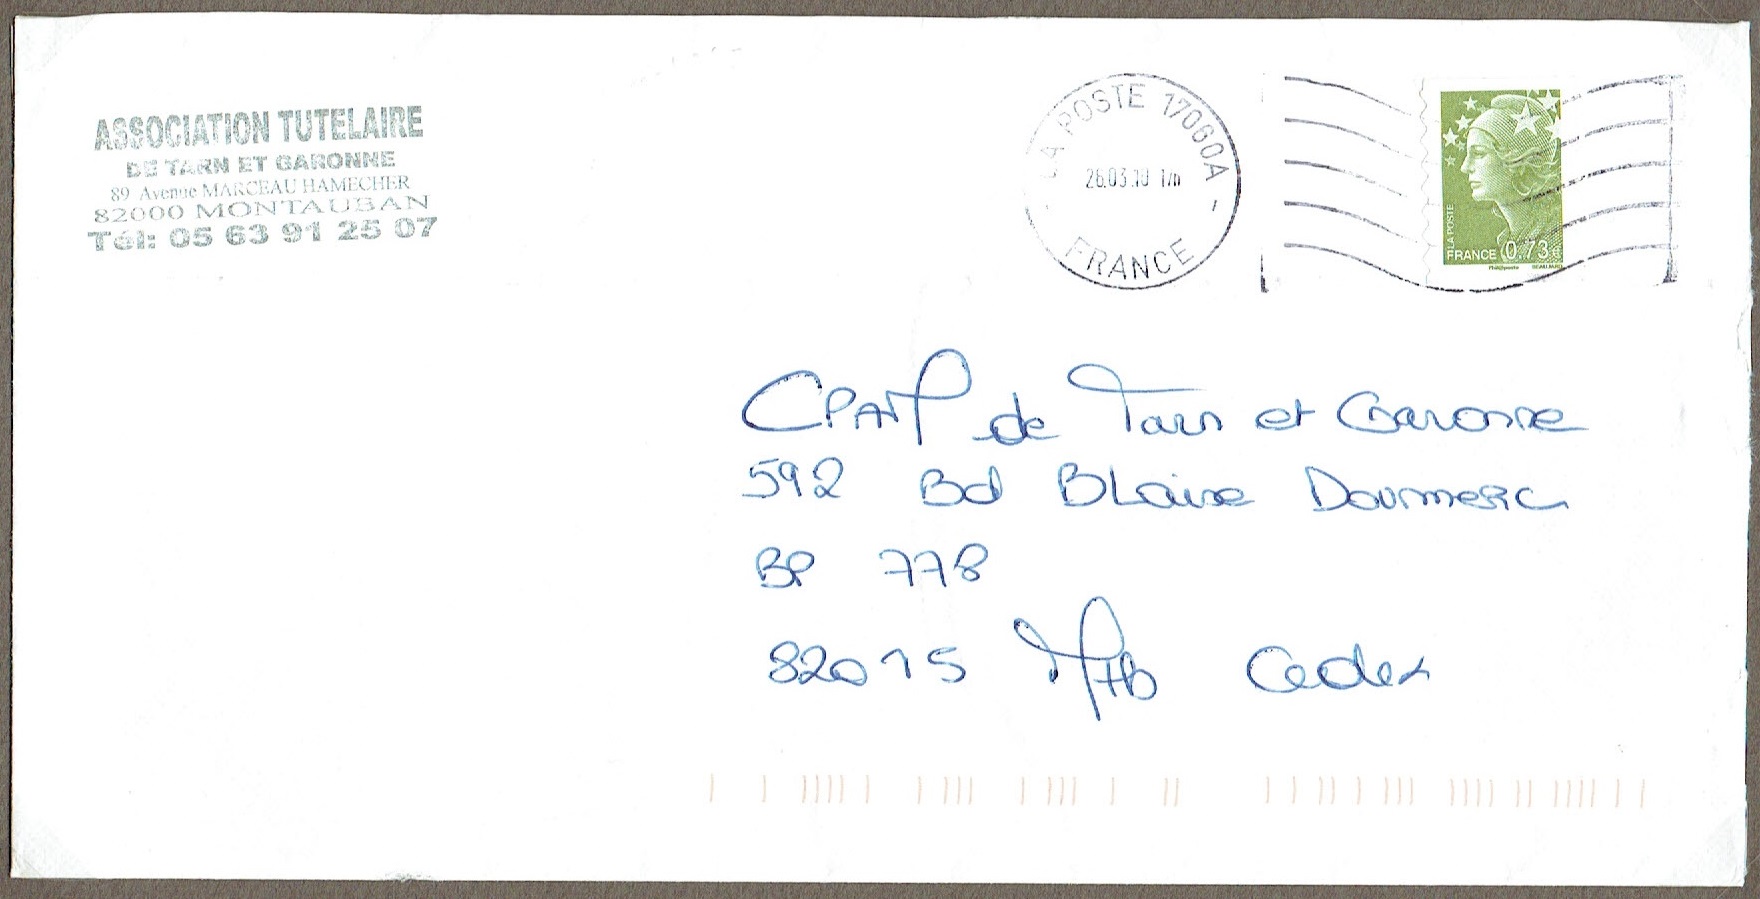 ASSOCIATION TUTELAIRE
DE TARN ET GARONNE
89 Avenue MARCEAU HAMECHER
82000 MONTAUBAN
Tél: 05 63 91 25 07
LA POSTE 17060A
26.03.10
FRANCE
LA POSTE
FRANCE 0,73 €
Phil@poste BEAUJARD
CPAM de Tarn et Garonne
592 Bd BLaise Doumerc
BP 778
82015 MTB Cedex